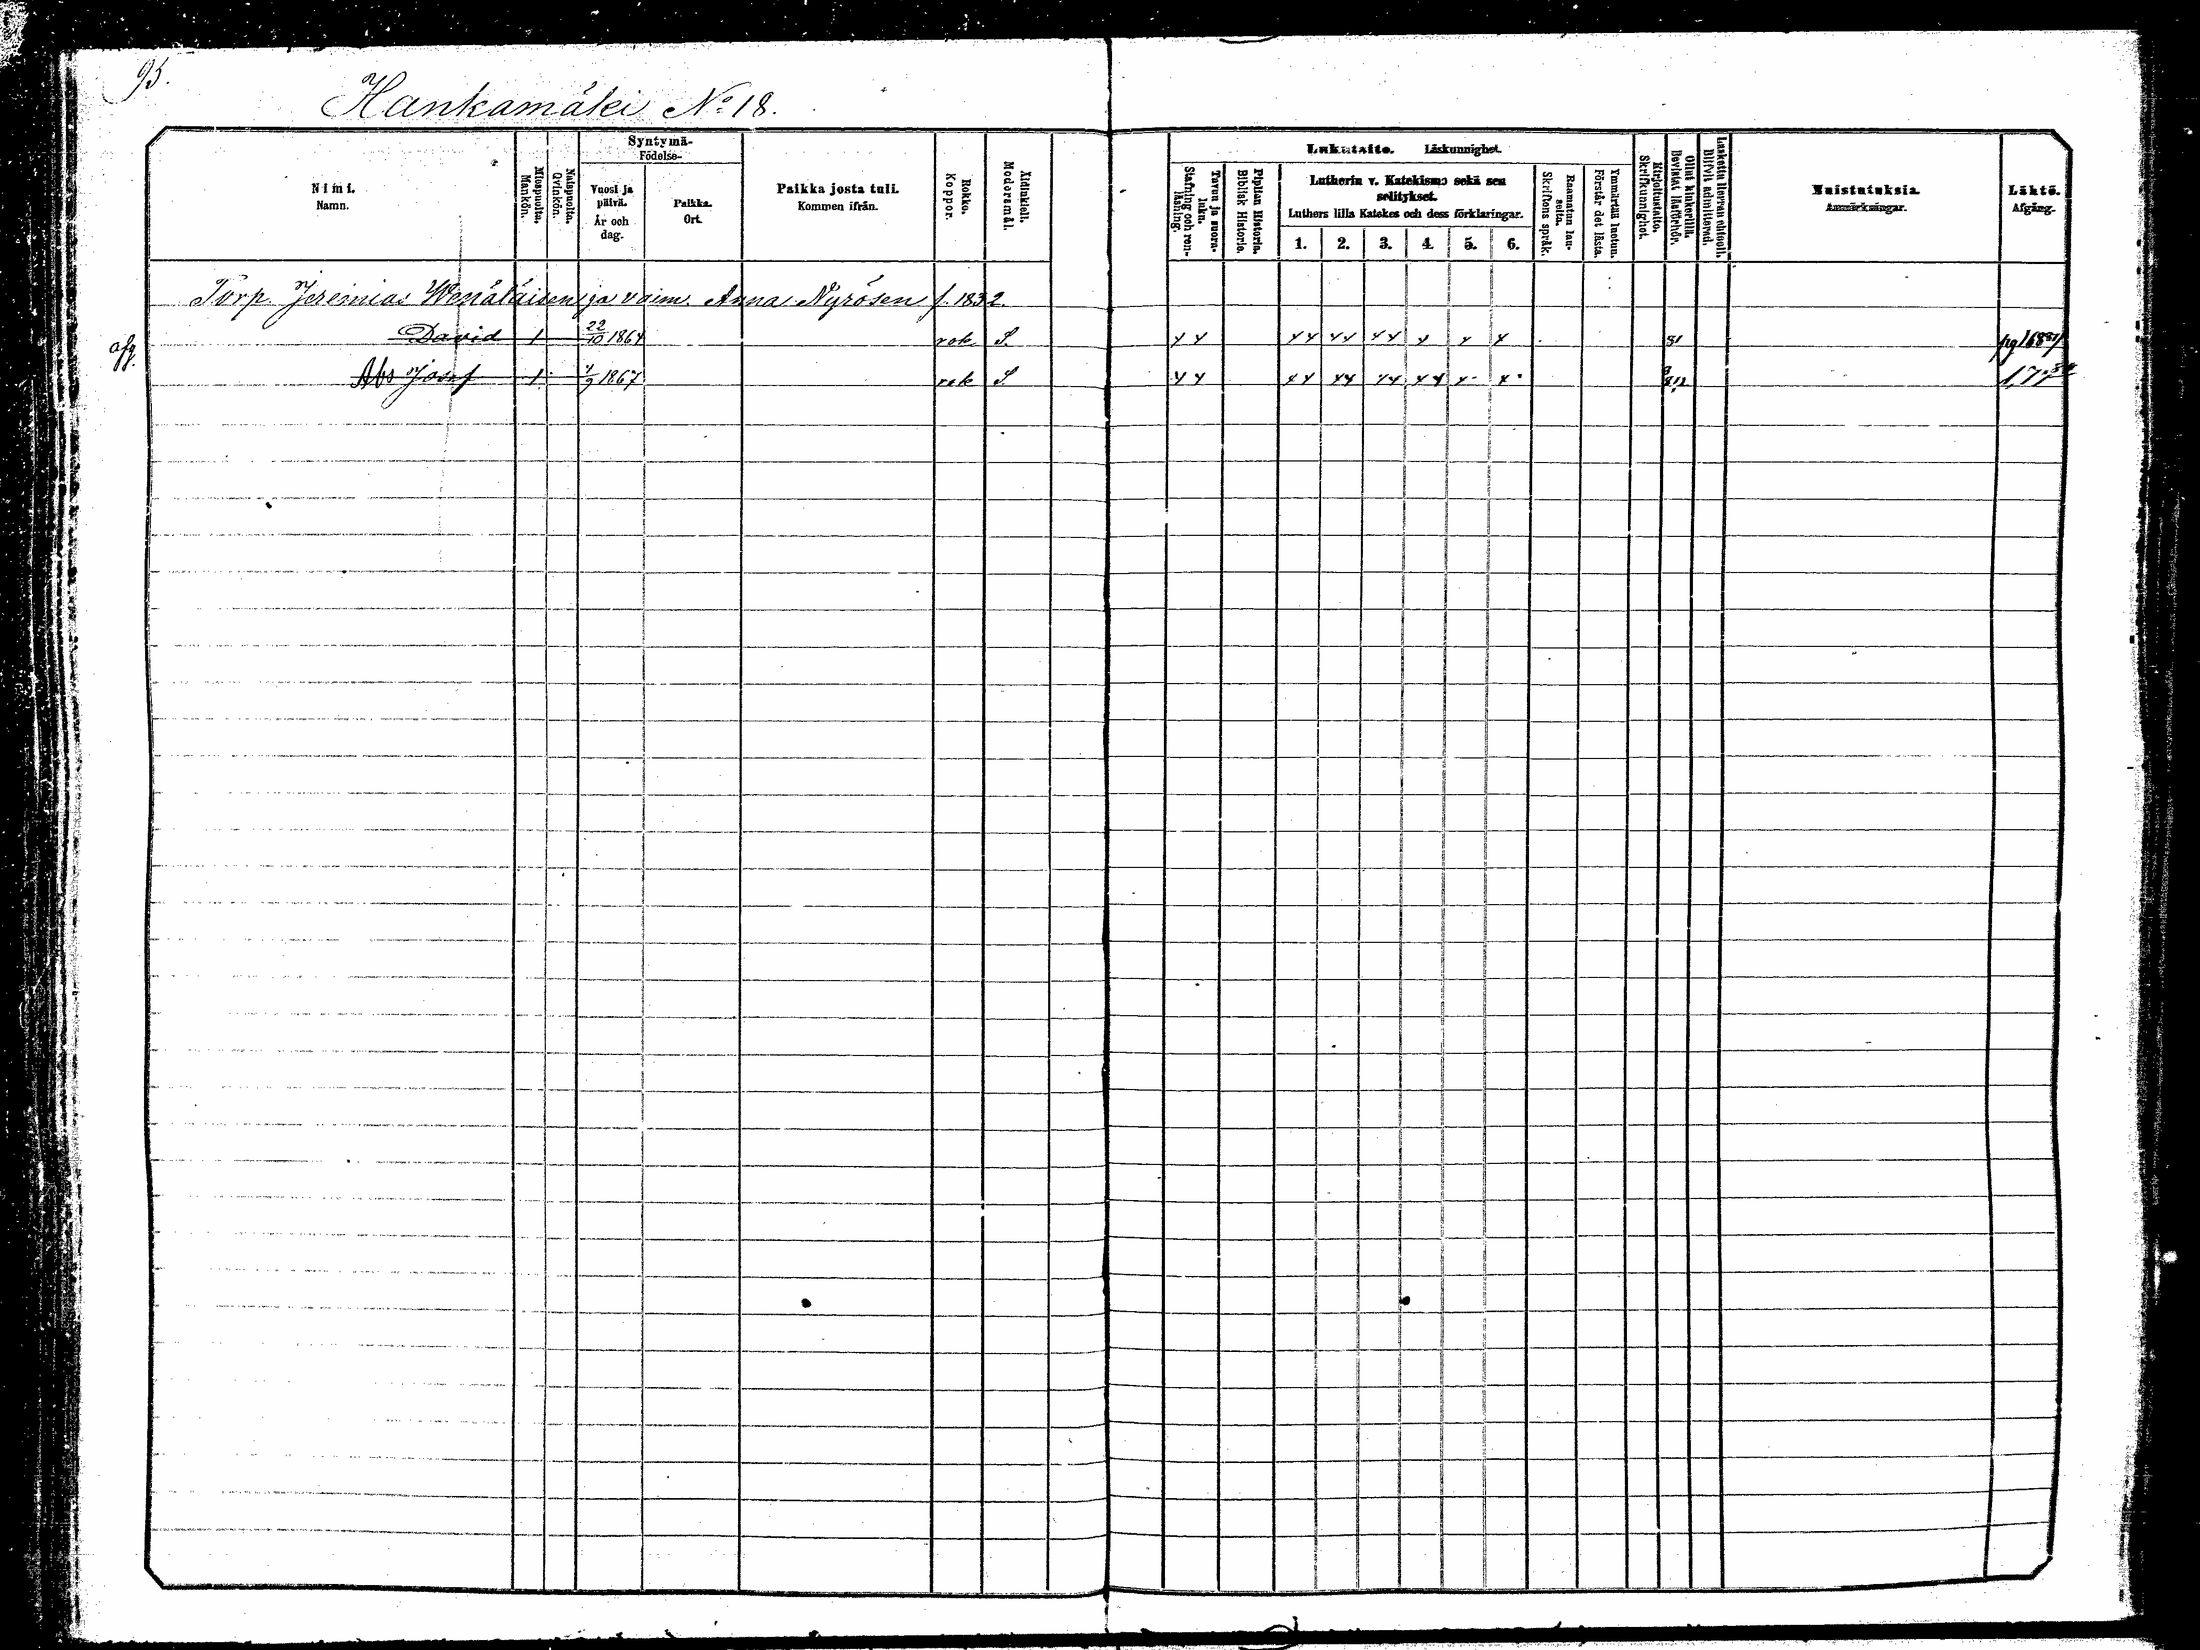 95.
Hankamäki No 18.
Nimi. Namn.
Miespuolta. Mankön.
Naispuolta. Qvinkön.
Syntymä- Födelse-
Vuosi ja päivä. År och dag.
Paikka. Ort.
Paikka josta tuli. Kommen ifrån.
Rokko. Koppor.
Äidinkieli. Modersmål.
Lukutaito. Läskunnighet.
Tavuu ja suora- luku. Stafning och ren- läsning.
Piplian Historia. Biblisk Historia.
Lutherin v. Katekismo sekä sen selitykset.
Luthers lilla Katekes och dess förklaringar.
1. 2. 3. 4. 5. 6.
Raamatun lau- seita. Skriftens språk.
Ymmärtää luetun. Förstår det lästa.
Kirjoitustaito. Skrifkunnighet.
Ollut kinkerillä. Bevistat läsförhör.
Laskettu Herran ehtoolle. Blifvit admitterad.
Muistutuksia. Anmärkningar.
Lähtö. Afgång.
Torp. Jeremias Wenäläisen ja vaim. Anna Nyrösen f. 1832.
David 1 22/10 1864 rok. S. 81 pg 168
afg. Abs Josef 1 1867 rok S. 177